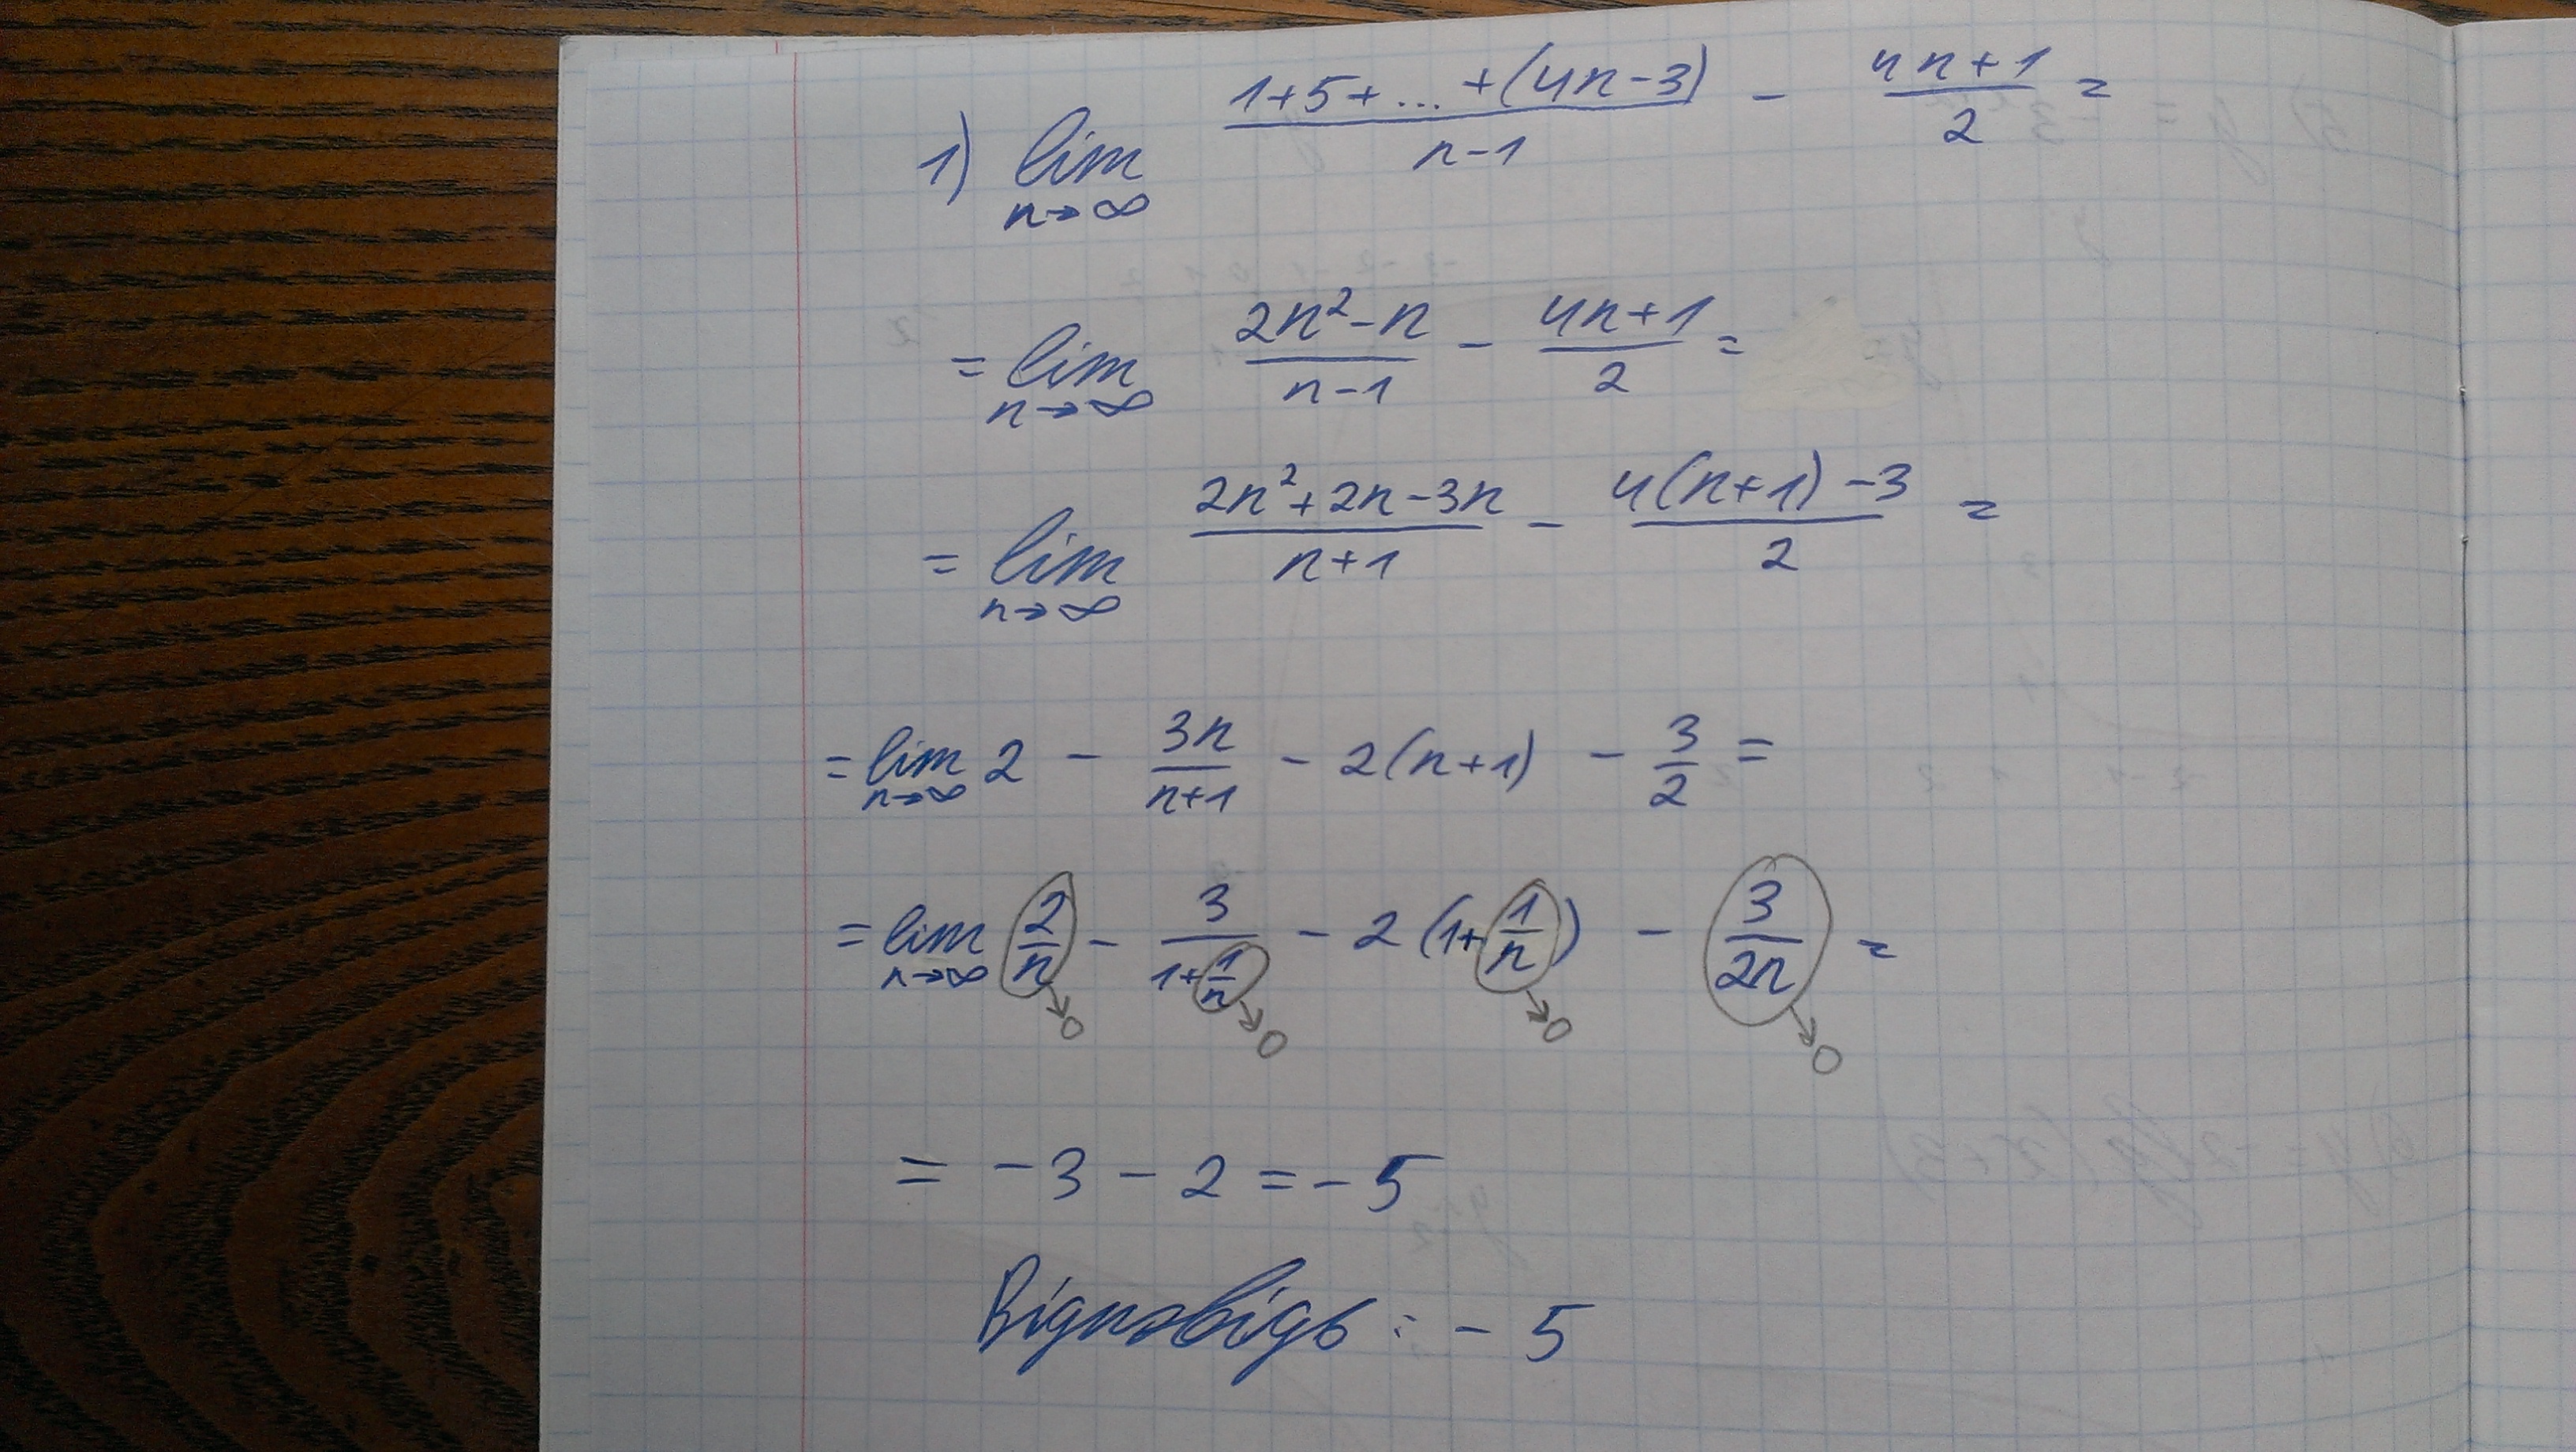 1) lim n→∞ (1+5+...+(4n-3))/(n-1) - (4n+1)/2 =
= lim n→∞ (2n²-n)/(n-1) - (4n+1)/2 =
= lim n→∞ (2n²+2n-3n)/(n+1) - (4(n+1)-3)/2 =
= lim n→∞ 2 - 3n/(n+1) - 2(n+1) - 3/2 =
= lim n→∞ 2/n - 3/(1+1/n) - 2(1+1/n) - 3/(2n) =
→0 →0 →0 →0
= -3 - 2 = -5
Відповідь: -5